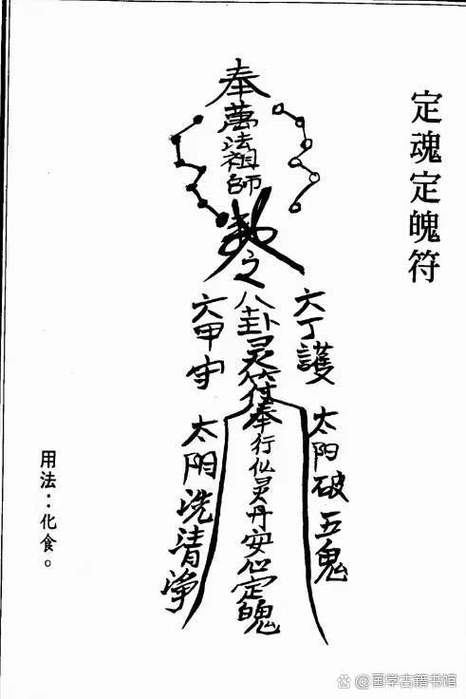 定魂定魄符
奉萬法祖師敕之八卦灵符奉行似灵丹安心定魄
六丁護
太阳破五鬼
六甲守
太阴洗清净
用法：化食。
国学古籍书馆